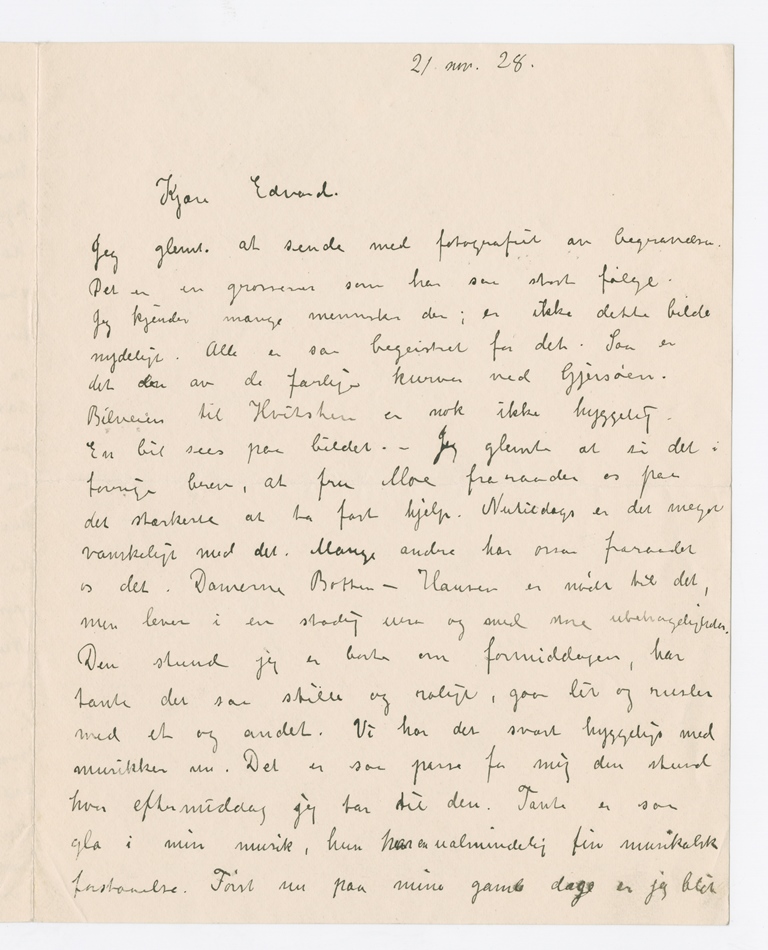 21. nov. 28.
Kjære Edvard.
Jeg glemte at sende med fotografiet av begravelsen.
Det er en grosserer som har saa stort følge.
Jeg kjender mange mennesker der; er ikke dette bilde
nydeligt. Alle er saa begeistret for det. Saa er
det den av de farlige kurver ved Gjersøen.
Bilveien til Hvitsten er nok ikke hyggelig.
En bil sees paa bildet. – Jeg glemte at si det i
forrige brev, at fru Moe fraraader os paa
det stærkeste at ta fast hjelp. Nutildags er det meget
vanskeligt med det. Mange andre har ossaa fraraadet
os det. Damerne Botten-Hansen er nødt til det,
men lever i en stadig uro og med store ubehageligheder.
Den stund jeg er borte om formiddagen, har
tante det saa stille og roligt, gaar lit og rusler
med et og andet. Vi har det svært hyggeligt med
musikken nu. Det er saa passe for mig den stund
hver eftermiddag jeg tar til den. Tante er saa
gla i min musik, hun har en ualmindelig fin musikalsk
forstaaelse. Først nu paa mine gamle dage er jeg blit